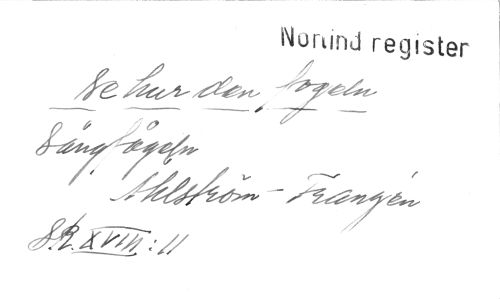 Norlind register
Se hur den fogeln
Sångfågeln
Ahlström - Frangén
S.R. XVIII:11